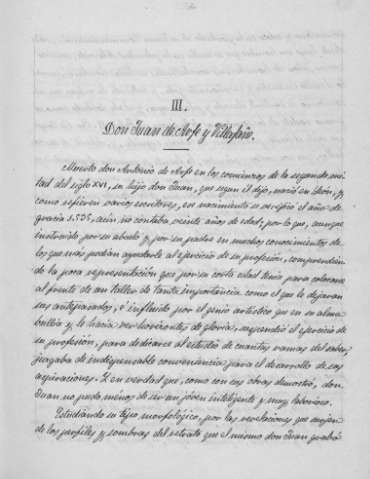 III.
Don Juan de Arfe y Villafañe.
Muerto don Antonio de Arfe en los comienzos de la segunda mi-
tad del siglo XVI, su hijo don Juan, que segun él dijo, nació en León, y
como refieren varios escritores, su nacimiento se verificó el año de
gracia 1.535, aún no contaba veinte años de edad; por lo que, aunque
instruido por su abuelo y por su padre en muchos conocimientos de
los que más podían ayudarle al ejercicio de su profesión, comprendien-
do la poca representación que por su corta edad tenía para colocarse
al frente de un taller de tanta importancia como el que le dejaran
sus antepasados, é influido por el genio artístico que en su alma
bullía y le hacía ver horizontes de gloria, suspendió el ejercicio de
su profesión, para dedicarse al estudio de cuantos ramos del saber,
juzgaba de indispensable conveniencia para el desarrollo de sus
aspiraciones. Y en verdad que, como con sus obras demostró, don
Juan no pudo menos de ser un jóven inteligente y muy laborioso.
Estudiando su tipo morfológico, por las revelaciones que surjen
de los perfiles y sombras del retrato que el mismo don Juan grabó